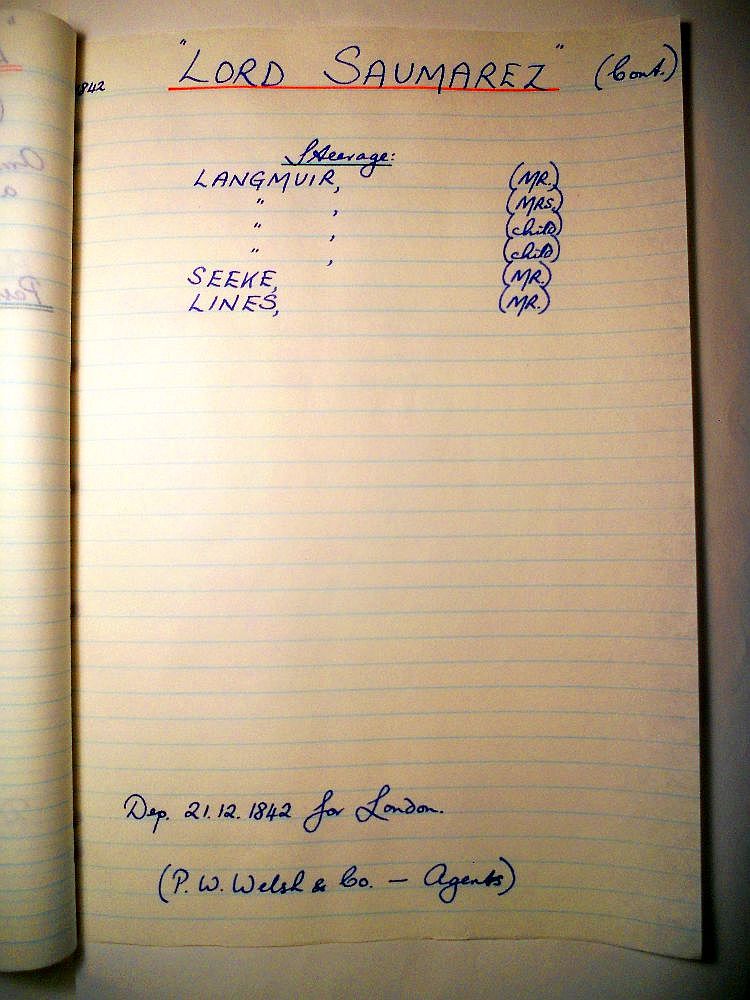 1842 "LORD SAUMAREZ" (Cont.)
Steerage:
LANGMUIR, (MR.)
" , (MRS.)
" , (child)
" , (child)
SEEKE, (MR.)
LINES, (MR.)
Dep. 21.12.1842 for London.
(P. W. Welsh & Co. — Agents)